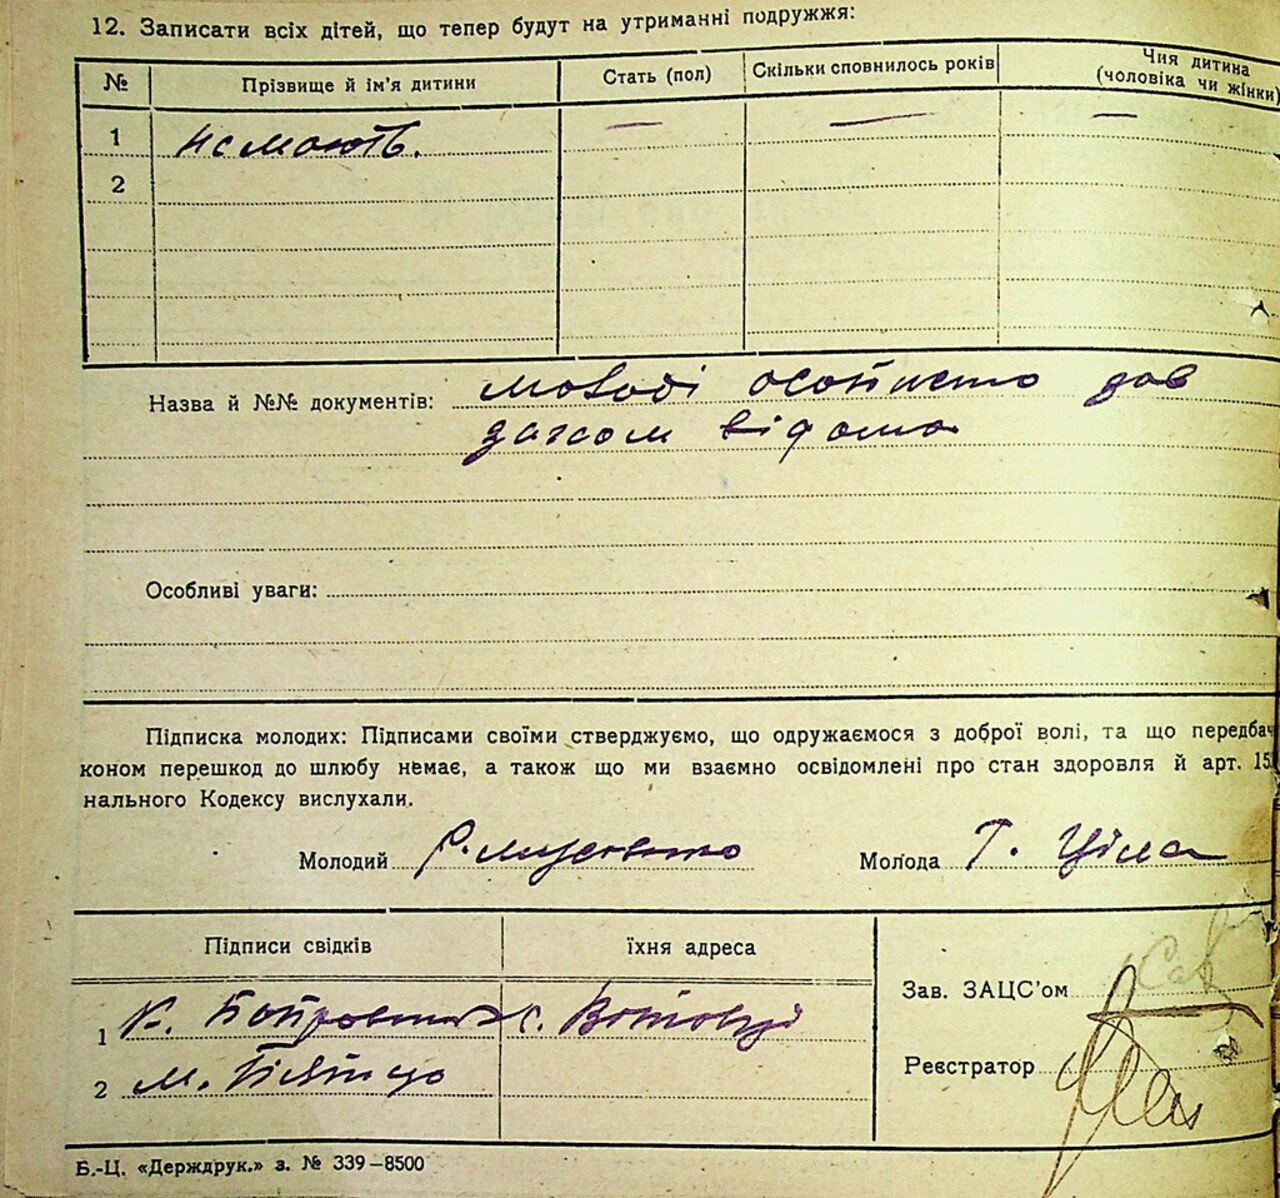 12. Записати всіх дітей, що тепер будут на утриманні подружжя:
№ Прізвище й ім'я дитини Стать (пол) Скільки сповнилось років Чия дитина (чоловіка чи жінки)
1 не мають. — — —
2
Назва й №№ документів: молоді особисто зав
загсом відомо
Особливі уваги:
Підписка молодих: Підписами своїми стверджуємо, що одружаємося з доброї волі, та що передбач
коном перешкод до шлюбу немає, а також що ми взаємно освідомлені про стан здоровля й арт. 15
нального Кодексу вислухали.
Молодий Молода Т. Ціла
Підписи свідків їхня адреса
Зав. ЗАЦС'ом
1 К. с.
2 М.
Реєстратор
Б.-Ц. «Держдрук.» з. № 339–8500